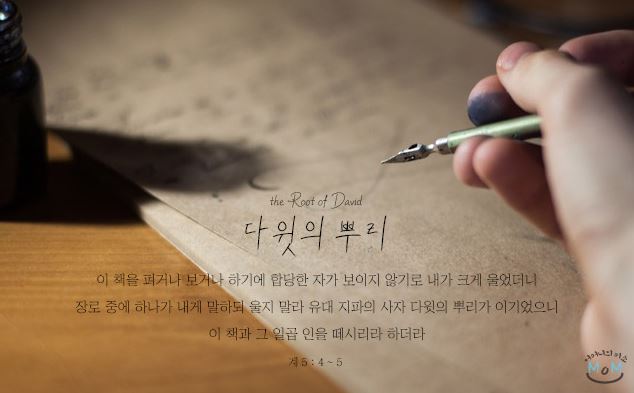 the Root of David
다윗의 뿌리
이 책을 펴거나 보거나 하기에 합당한 자가 보이지 않기로 내가 크게 울었더니
장로 중에 하나가 내게 말하되 울지 말라 유대 지파의 사자 다윗의 뿌리가 이기었으니
이 책과 그 일곱 인을 떼시리라 하더라
계 5 : 4 ~ 5
MoM